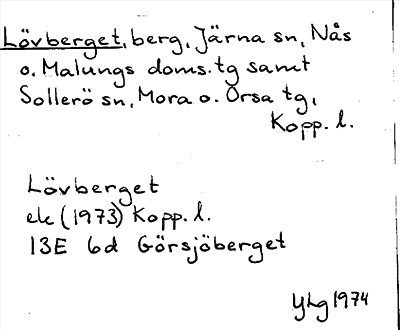 Lövberget, berg, Järna sn, Nås
o. Malungs doms. tg samt
Sollerö sn, Mora o. Orsa tg,
Kopp. l.
Lövberget
ek (1973) Kopp. l.
13E 6d Görsjöberget
YLg 1974